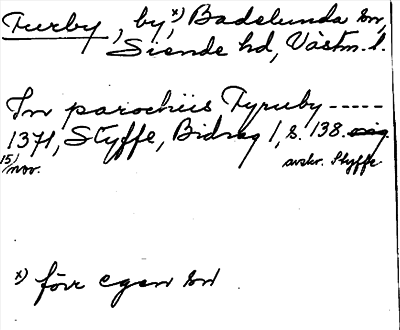 Turby, by,x) Badelunda sn,
Siende hd, Västm. l.
In parochiis Tyruby -----
1371, Styffe, Bidrag 1, s. 138.
15/ nov. avskr. Styffe
x) förr egen sn